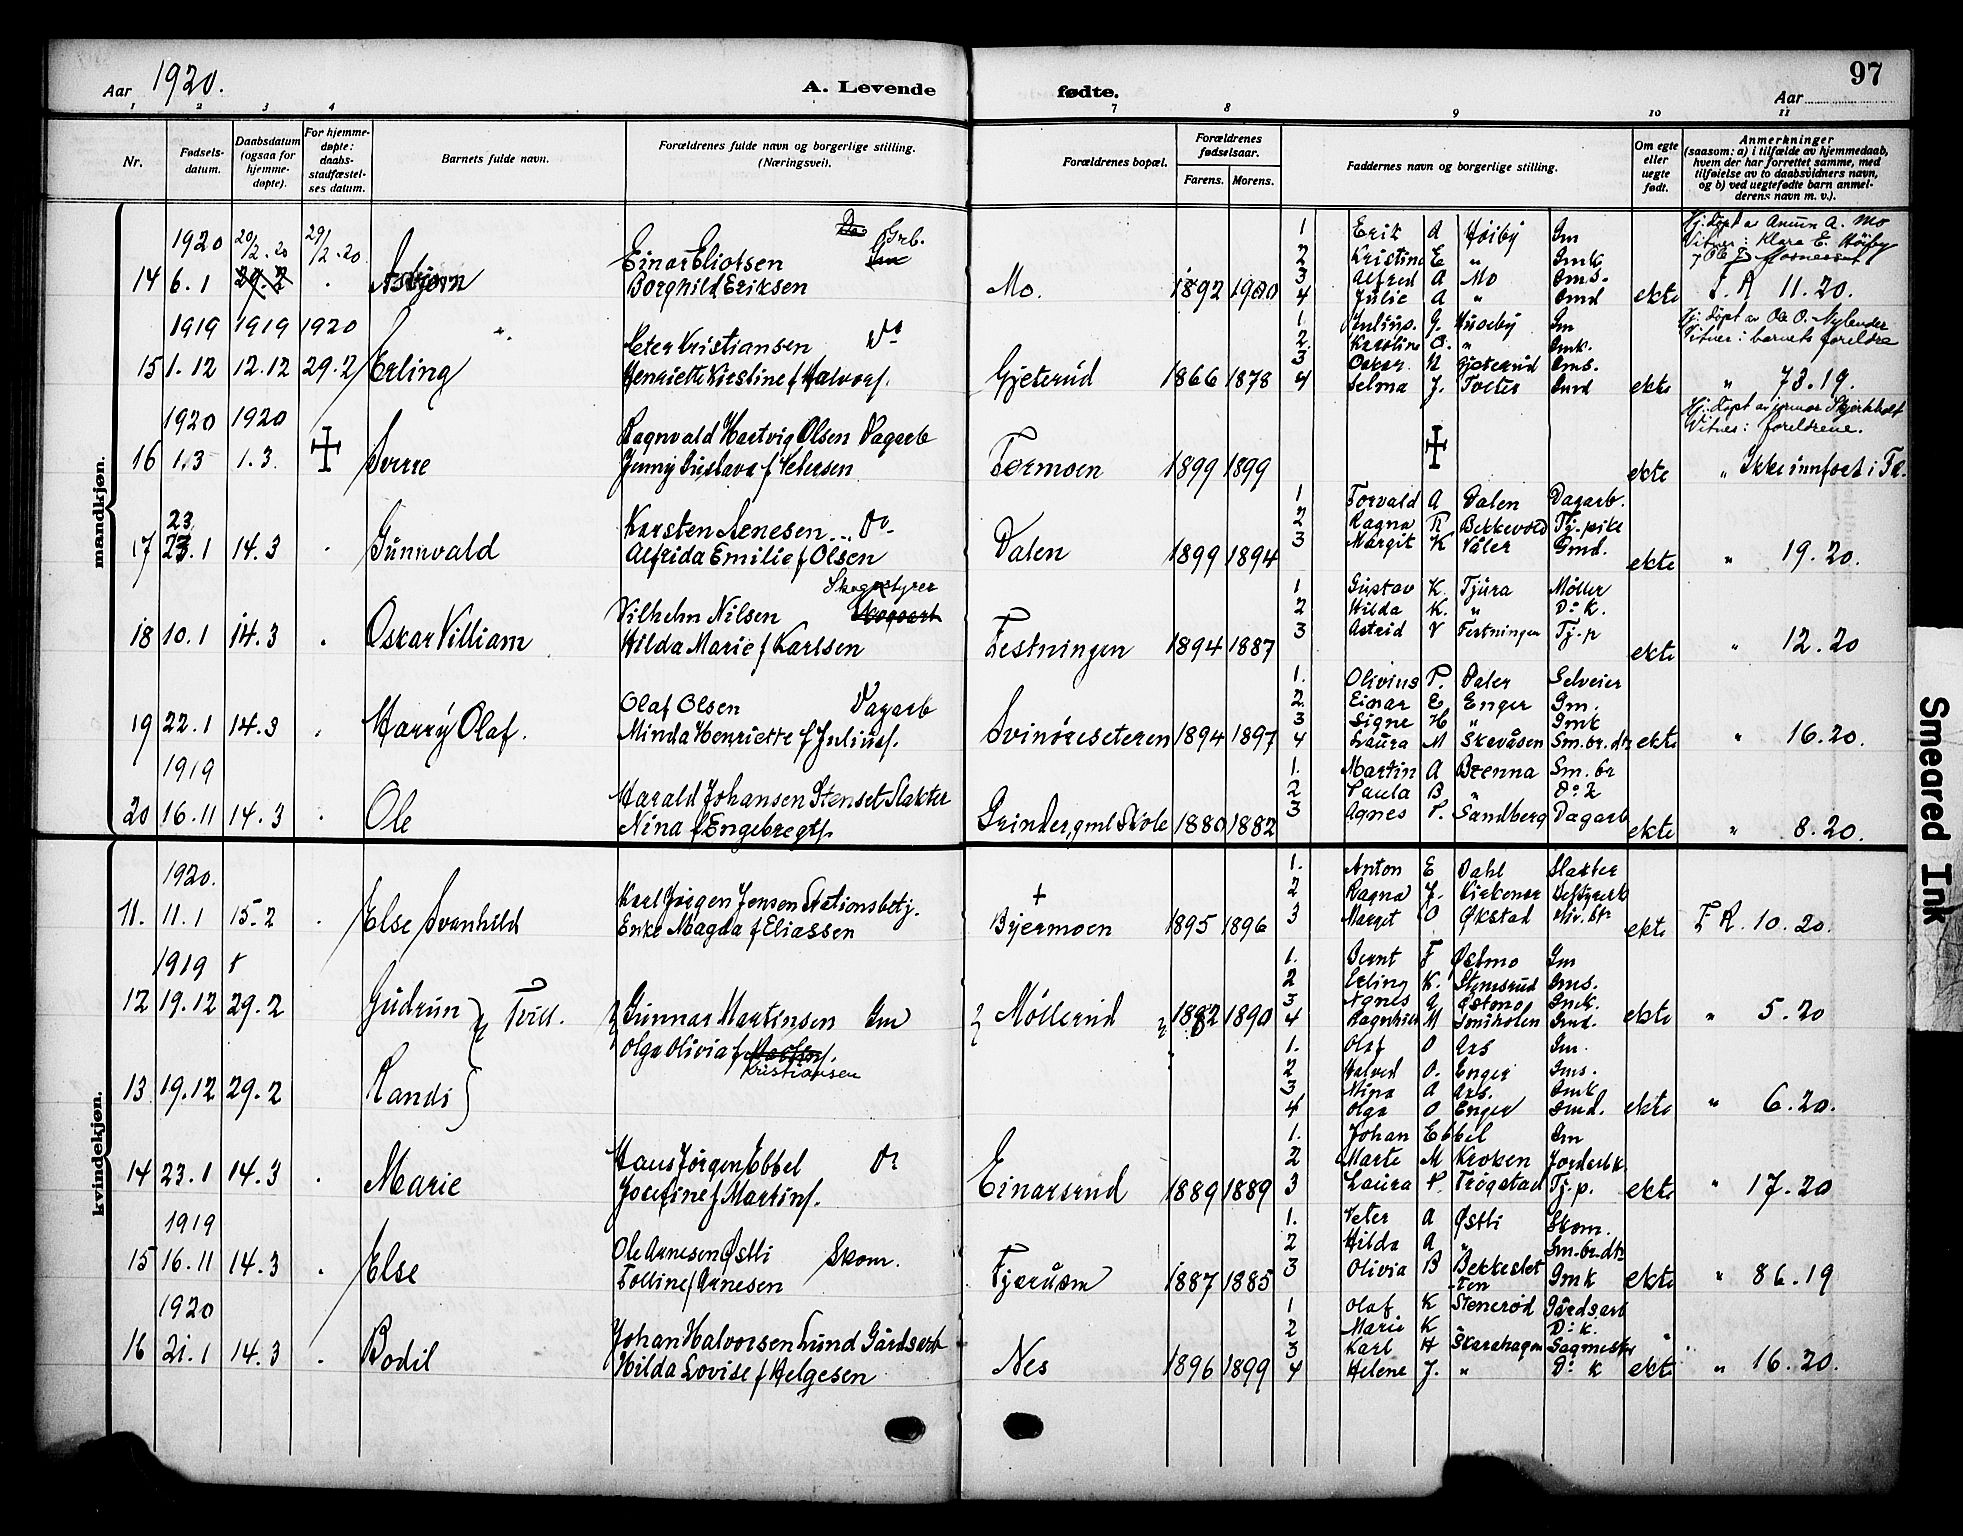 97
Aar 1920.
A. Levende fødte.
Aar
1 2 3 4 7 8 9 10 11
Nr.
Fødsels-datum.
Daabsdatum (ogsaa for hjemme-døpte).
For hjemme-døpte: daabs-stadfæstel-ses datum.
Barnets fulde navn.
Forældrenes fulde navn og borgerlige stilling. (Næringsvei).
Forældrenes bopæl.
Forældrenes fødselsaar.
Farens. Morens.
Faddernes navn og borgerlige stilling.
Om egte eller uegte født.
Anmerkninger
(saasom: a) i tilfælde av hjemmedaab, hvem der har forrettet samme, med tilføielse av to daabsvidners navn, og b) ved uegtefødte barn anmel-derens navn m. v.).
mandkjøn.
1920 20/2.20 29/2.20
14 6.1 29.2 Asbjørn
Einar Eliotsen Grb.
Borghild Eriksen
Mo. 1892 1900
1 Erik A Høiby Gm
2 Kristine E " Gmk
3 Alfred A Mo Gms.
4 Julie A " Gmd
ekte
Hj. døpt av Amun A. Mo
Vitner: Klara E. Høiby
F. R 11.20.
1919 1919 1920
15 1.12 12.12 29.2 Erling
Peter Kristiansen Do
Henriette Kirstine f Halvors.
Gjeterud 1866 1878
1. Julius. G. Huseby Gm
2. Karoline O. " Gmk.
3 Oskar N Gjeterud Gms.
4 Selma J. Toeter Gmd
ekte
Hj. døpt av Ole O. Nylender
Vitner: barnets foreldre
" 73.19.
1920 1920
16 1.3 1.3. Sverre
Ragnvald Hartvig Olsen Dagarb
Jenny Gustava f Petersen
Tormoen 1899 1899
ekte
Vitner: foreldrene.
" Ikke innført i F.R.
23
17 23.1 14.3 Gunnvald
Karsten Arnesen Do
Alfrida Emilie f Olsen
Dalen 1899 1894
1 Torvald A Dalen Dagarb.
2 Ragna R Bekkevold Tj.pike
3 Margit K Våler Gmd.
ekte " 19.20.
18 10.1 14.3 Oskar Villiam
Vilhelm Nilsen Skogstyrer
Hilda Marie f Karlsen
Festningen 1894 1887
1 Gustav K. Tjura Møller
2 Hilda K. " Do k.
3 Astrid V Festningen Tj.p
ekte " 12.20
19 22.1 14.3 Harry Olaf.
Olaf Olsen Dagarb
Minda Henriette f Julius.
Svinøreseteren 1894 1897
1. Olivius P. Daler Selveier
2. Einar E. Enger Gm.
3 Signe H " Gmk
4 Laura M Skevåsen Sm.br.dtr
ekte " 16.20.
1919
20 16.11 14.3 Ole
Harald Johansen Stenset Slakter
Nina f Engebregts.
Grinder, gml Skole 1880 1882
1. Martin A Brenna Sm.br
2 Paula B " Do k
3 Agnes P. Sandberg Dagarb
ekte " 8.20.
kvindekjøn.
1920.
11. 11.1 15.2 Else Svanhild
Karl Jørgen Jensen Stationsbetj.
Enke Magda f Eliassen
+
Bjermoen 1895 1896
1. Anton E Dahl Slakter
2 Ragna J. Kirkener
3 Margit O. Økstad
ekte F R. 10.20.
1919
12 19.12 29.2 Gudrun Tvill.
Gunnar Martinsen Gm
Olga Olivia f
Kristiansen
Møllerud 1882 1890
1. Bernt F Østmo Gm
2 Erling K. Stemsrud Gms.
3. Agnes A Østmo Gmk.
4 Ragnhild M Smiholen Gmd.
ekte " 5.20
13 19.12 29.2 Randi
1. Olaf O Axs Gm.
2 Halvod O. Enger Gms.
3 Nina A Axs. Gmk
4 Olga O Enger Gmd.
ekte " 6.20.
14 23.1 14.3 Marie
Hans Jørgen Ebbel Do
Josefine f Martins.
Einarsrud 1889 1889
1. Johan Ebbel Gm
2 Marte M Kroken Jorderbk.
3 Laura P. Trøgstad Tj.p.
ekte " 17.20
1919
15 16.11 14.3 Else
Ole Arnesen Østli Skom.
Tolline f Arnesen
Fjerusm 1887 1885
1. Peter A Østli Skom.
2 Hilda A " Sm.br.dtr
3 Olivia B Bekkeslet-ten Gmk
ekte " 86.19
1920
16 21.1 14.3 Bodil
Johan Halvorsen Lund Gårdsarb
Hilda Lovise f Helgesen
Nes 1896 1899
1 Olaf K Stenerød Gårdsarb
2 Marie K " Do k.
3 Karl H Skarahagen Sagmester
4 Helene J. " Do K
ekte " 16.20.
Smeared Ink